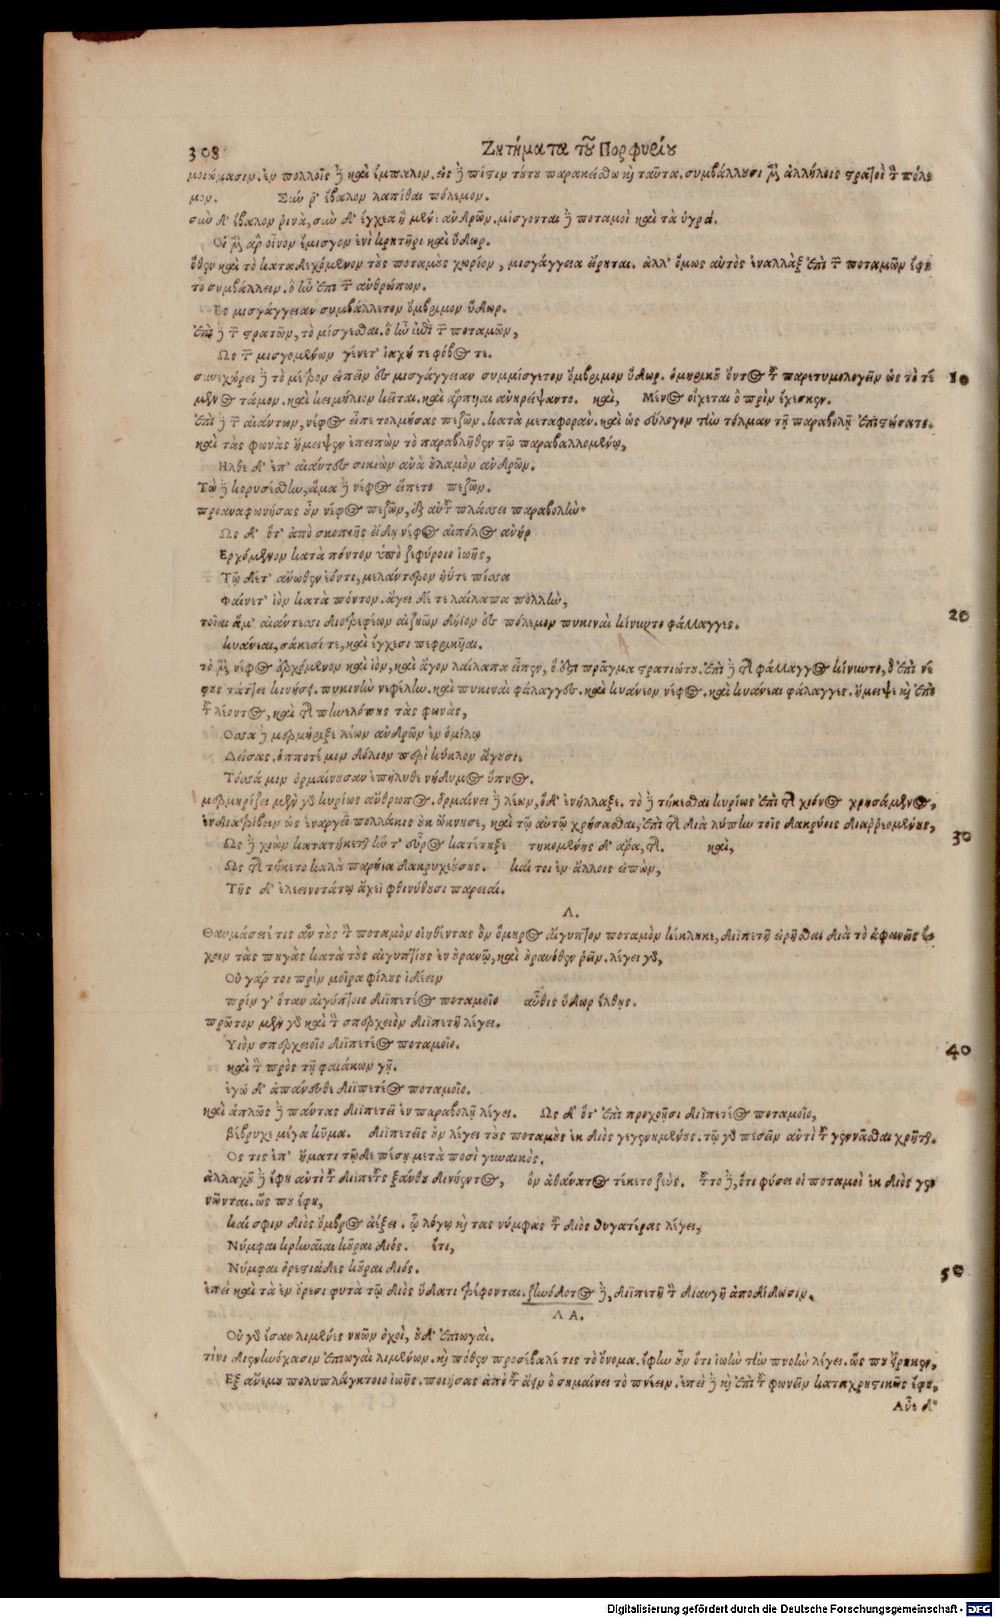 308 Ζητήματα τοῦ Πορφυρίου
μοιώμασιν. ἐν πολλοῖς δὲ καὶ ἔμπαλιν. εἰς δὲ πίστιν τούτου παρακείσθω καὶ ταῦτα. συμβάλλουσι μὲν ἀλλήλοις στρατοὶ τὸν πόλε
μον. Σύν ῥ' ἔβαλον λαπίθαι πόλεμον.
σὺν δ' ἔβαλον ῥινὰ, σὺν δ' ἔγχεα καὶ μένε' ἀνδρῶν. μίσγονται δὲ ποταμοὶ καὶ τὰ ὑγρά.
Οἱ μὲν ἄρ οἶνον ἔμισγον ἐνὶ κρητῆρι καὶ ὕδωρ.
ὅθεν καὶ τὸ καταδεχόμενον τοὺς ποταμοὺς χωρίον, μισγάγγεια εἴρηται. ἀλλ' ὅμως αὐτὸς ἐναλλὰξ ἐπὶ τῶν ποταμῶν ἔφη
τὸ συμβάλλειν. ὃ ἦν ἐπὶ τῶν ἀνθρώπων.
Ἐς μισγάγγειαν συμβάλλετον ὄμβριμον ὕδωρ.
ἐπὶ δὲ τῶν στρατῶν, τὸ μίσγεσθαι. ὃ ἦν ἐπὶ τῶν ποταμῶν,
Ως τῶν μισγομένων γένετ' ἰαχή τε φόβος τε.
συνεχώρει δὲ τὸ μέτρον εἰπεῖν ἐς μισγάγγειαν συμμίσγετον ὄμβριμον ὕδωρ. ὁμηρικοῦ ὄντος τοῦ παρετυμολογεῖν ὡς τὸ τέ 10
μενος τάμον. καὶ κειμήλιον κεῖται. καὶ ἅρπυιαι ἀνηρείψαντο. καὶ, Μένος οἴχεται ὃ πρὶν ἔχεσκεν.
ἐπὶ δὲ τῶν αἰάντων, νέφος εἶπε τολμήσας πεζῶν. κατὰ μεταφορὰν. καὶ ὡς εὔλογον τὴν τόλμαν τῇ παραβολῇ ἐπιστώσατο.
καὶ τὰς φωνὰς ἤμειψεν ἐπειπὼν τὸ παραβληθὲν τῷ παραβαλλομένῳ,
Ηλθε δ' ἐπ' αἰάντεσσι κιὼν ἀνὰ οὐλαμὸν ἀνδρῶν.
Τὼ δὲ κορυσέσθην, ἅμα δὲ νέφος εἵπετο πεζῶν.
προαναφωνήσας οὖν νέφος πεζῶν, ἐξ αὐτοῦ πλάσσει παραβολὴν.
Ως δ' ὅτ' ἀπὸ σκοπιῆς εἶδεν νέφος αἰπόλος ἀνὴρ
Ερχόμενον κατὰ πόντον ὑπὸ ζεφύροιο ἰωῆς,
Τῷ δέ τ' ἄνωθεν ἐόντι, μελάντερον ἠΰτε πίσσα
Φαίνετ' ἰὸν κατὰ πόντον. ἄγει δέ τε λαίλαπα πολλὴν,
τοῖαι ἅμ' αἰάντεσσι διοτρεφέων αἰζηῶν δήϊον ἐς πόλεμον πυκιναὶ κίνυντο φάλαγγες. 20
κυάνεαι, σάκεσί τε, καὶ ἔγχεσι πεφρικυῖαι.
τὸ μὲν νέφος ἐρχόμενον καὶ ἰὸν, καὶ ἄγον λαίλαπα εἶπεν, ὅ ἐστι πρᾶγμα στρατιώτου. ἐπὶ δὲ τῆς φάλαγγος κίνυντο, ὃ ἐπὶ νέ
φους τάττει κινήσει. πυκινὴν νεφέλην. καὶ πυκιναὶ φάλαγγες. καὶ κυάνεον νέφος. καὶ κυάνεαι φάλαγγες. ἤμειψε καὶ ἐπὶ
τοῦ λέοντος, καὶ τῆς πηνελόπης τὰς φωνὰς,
Οσσα δὲ μερμήριξε λέων ἀνδρῶν ἐν ὁμίλῳ
Δείσας. ὁππότε μιν δόλιον περὶ κύκλον ἄγουσι.
Τόσσά μιν ὁρμαίνουσαν ἐπήλυθε νήδυμος ὕπνος.
μερμηρίζει μὲν γὰρ κυρίως ἄνθρωπος. ὁρμαίνει δὲ λέων, ὅδ' ἐνήλλαξε. τὸ δὲ τήκεσθαι κυρίως ἐπὶ τῆς χιόνος χρησάμενος,
ἐνδιατρίβειν ὡς ἐναργεῖ πολλάκις οὐκ ὤκνησε, καὶ τῷ αὐτῷ χρήσασθαι, ἐπὶ τῆς διὰ λύπην τοῖς δακρύοις διαρρεομένης,
Ως δὲ χιὼν κατατήκετ' ἥν τ' εὖρος κατέτηξε τηκομένης δ' ἄρα, τῆς. καὶ, 30
Ως τῆς τήκετο καλὰ παρήϊα δακρυχεούσης. καί τοι ἐν ἄλλοις εἰπὼν,
Τῆς δ' ἐλεεινοτάτῳ ἄχεϊ φθινύθουσι παρειαί.
Λ.
Θαυμάσειέ τις ἂν τοὺς τὸν ποταμὸν οἰηθέντας ὃν ὅμηρος αἴγυπτον ποταμὸν κέκληκε, διϊπετῆ εἰρῆσθαι διὰ τὸ ἀφανεῖς ἔ
χειν τὰς πηγὰς κατὰ τοὺς αἰγυπτίους ἐν οὐρανῷ, καὶ οὐρανόθεν ῥεῖν. λέγει γὰρ,
Οὐ γάρ τοι πρὶν μοῖρα φίλους ἰδέειν
πρίν γ' ὅταν αἰγύπτοιο διϊπετέος ποταμοῖο αὖθις ὕδωρ ἔλθῃς.
πρῶτον μὲν γὰρ καὶ τὸν σπερχειὸν διϊπετῆ λέγει.
Υἱὸν σπερχειοῖο διϊπετέος ποταμοῖο.
καὶ τὸν πρὸς τῇ φαιάκων γῇ. 40
ἐγώ δ' ἀπάνευθε διϊπετέος ποταμοῖο.
καὶ ἁπλῶς δὲ πάντας διϊπετεῖς ἐν παραβολῇ λέγει. Ως δ' ὅτ' ἐπὶ προχοῇσι διϊπετέος ποταμοῖο,
βέβρυχε μέγα κῦμα. διϊπετεῖς οὖν λέγει τοὺς ποταμοὺς ἐκ διὸς γεγενημένους. τῷ γὰρ πεσεῖν ἀντὶ τοῦ γενέσθαι χρῆται.
Ος τις ἐπ' ἤματι τῷδε πέσῃ μετὰ ποσὶ γυναικός.
ἀλλαχοῦ δὲ ἔφη ἀντὶ τοῦ διϊπετοῦς ξάνθου δινήεντος, ὃν ἀθάνατος τέκετο ζεύς. τοῦτο δὲ, ὅτι φύσει οἱ ποταμοὶ ἐκ διὸς γεν
νῶνται. ὥς που ἔφη,
καί σφιν διὸς ὄμβρος ἀέξει. ᾧ λόγῳ καὶ τὰς νύμφας τοῦ διὸς θυγατέρας λέγει,
Νύμφαι κρηναῖαι κοῦραι διός. ἔτι,
Νύμφαι ὀρεστιάδες κοῦραι διός. 50
ἐπεὶ καὶ τὰ ἐν ὄρεσι φυτὰ τῷ διὸς ὕδατι τρέφονται. ζηνόδοτος δὲ, διϊπετῆ τὸν διαυγῆ ἀποδίδωσιν.
ΛΑ.
Οὐ γὰρ ἔσαν λιμένες νηῶν ὀχοὶ, οὐδ' ἐπιωγαί.
τίνι διενηνόχασιν ἐπιωγαὶ λιμένων. καὶ πόθεν προσέβαλέ τις τὸ ὄνομα. ἔφην οὖν ὅτι ἰωὴν τὴν πνοὴν λέγει. ὥς που εἴρηκεν,
Εξ ἀνέμου πολυπλάγκτοιο ἰωῆς. ποιήσας ἀπὸ τοῦ ἄειν ὃ σημαίνει τὸ πνέειν. ἐπεὶ δὲ καὶ ἐπὶ τοῦ φωνεῖν καταχρηστικῶς ἔφη,
Αὖε δ'
Digitalisierung gefördert durch die Deutsche Forschungsgemeinschaft - DFG